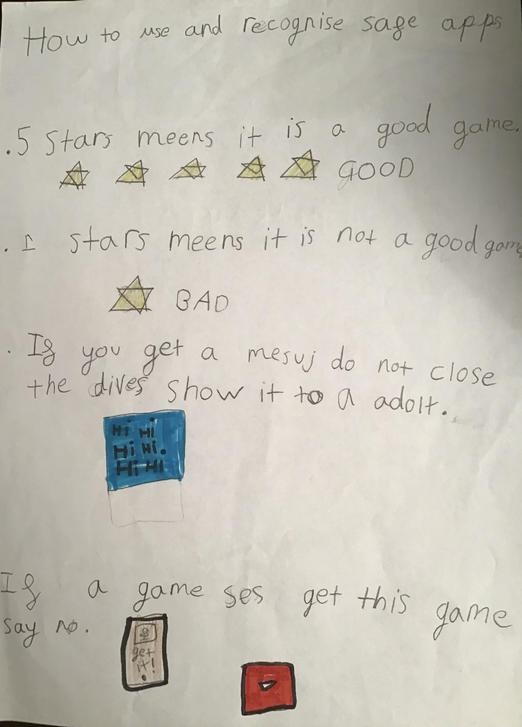 How to use and recognise sage apps
.5 Stars meens it is a good game.
GOOD
. 1 stars meens it is not a good game
BAD
. Ig you get a mesuj do not close
the dives show it to a adolt.
Hi Hi
Hi Hi.
Hi Hi
Ig a game ses get this game
say no.
get
it!